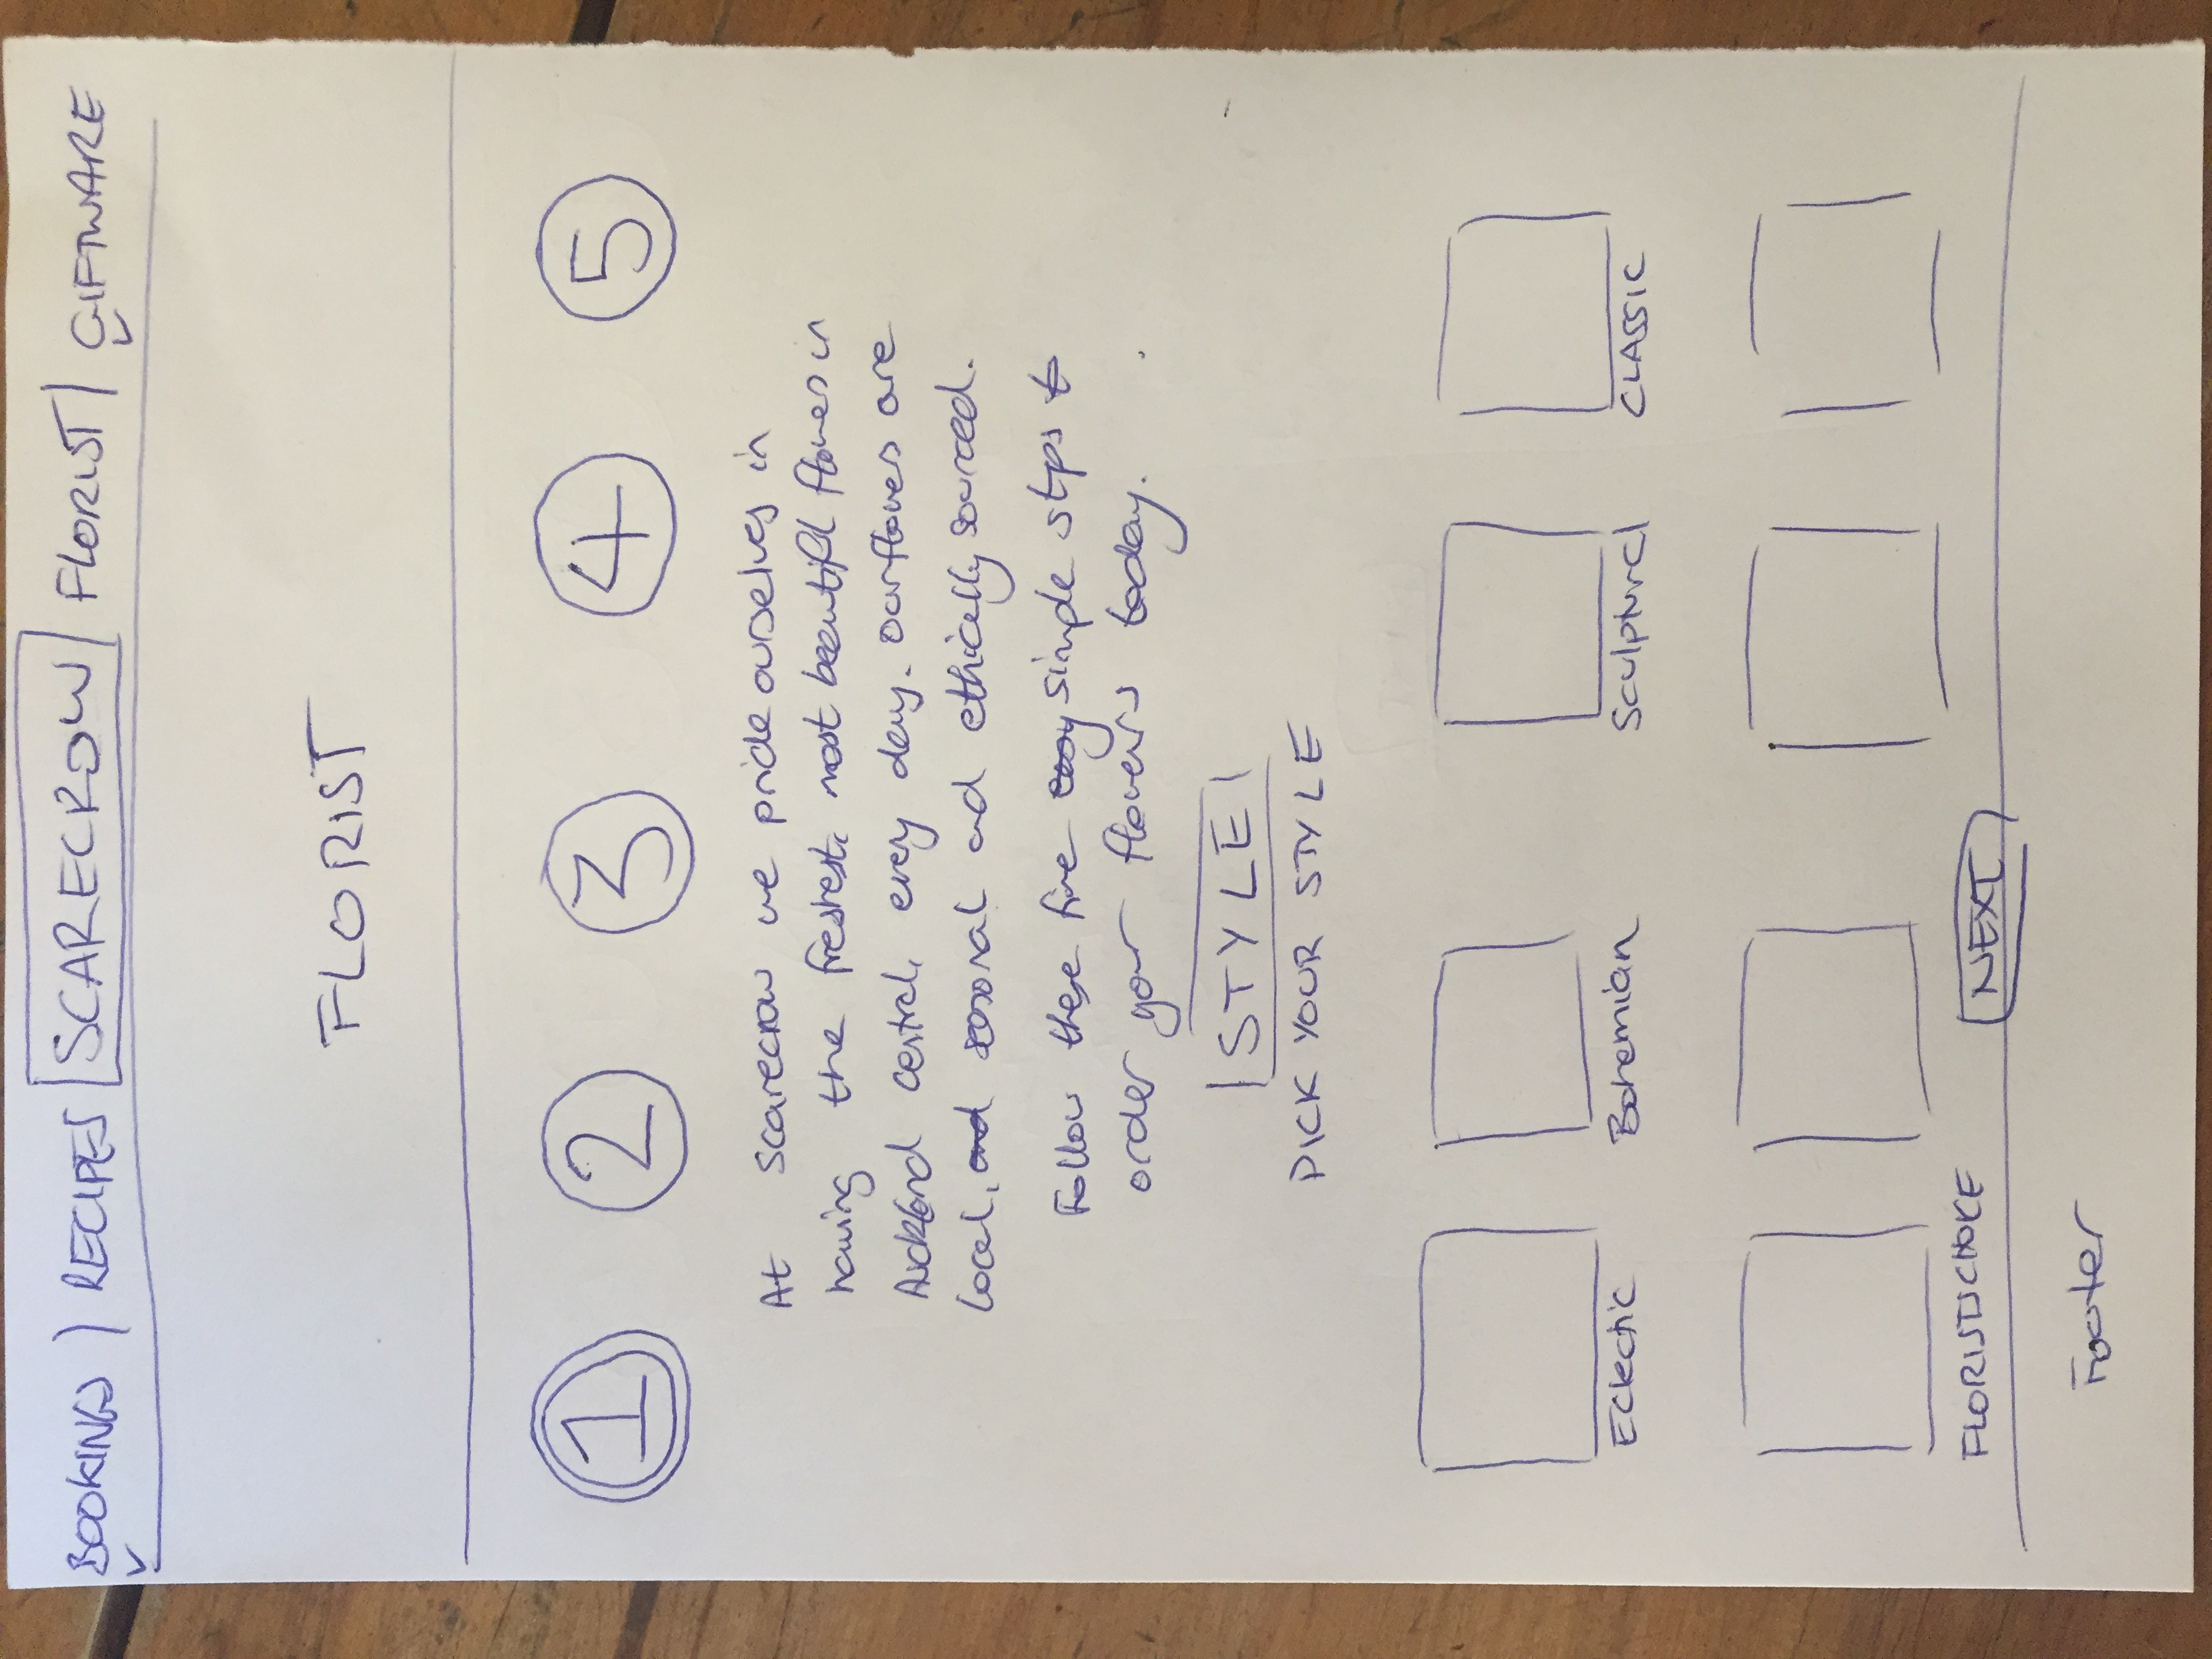 BOOKINGS | RECIPES | SCARECROW | FLORIST | GIFTWARE
FLORIST
1 2 3 4 5
At Scarecrow we pride ourselves in
having the freshest, most beautiful flowers in
Auckland central, every day. Our flowers are
local, and seasonal and ethically sourced.
Follow these five easy simple steps to
order your flowers today.
STYLE
PICK YOUR STYLE
Eclectic Bohemian Sculptural CLASSIC
FLORISTS CHOICE NEXT
Footer